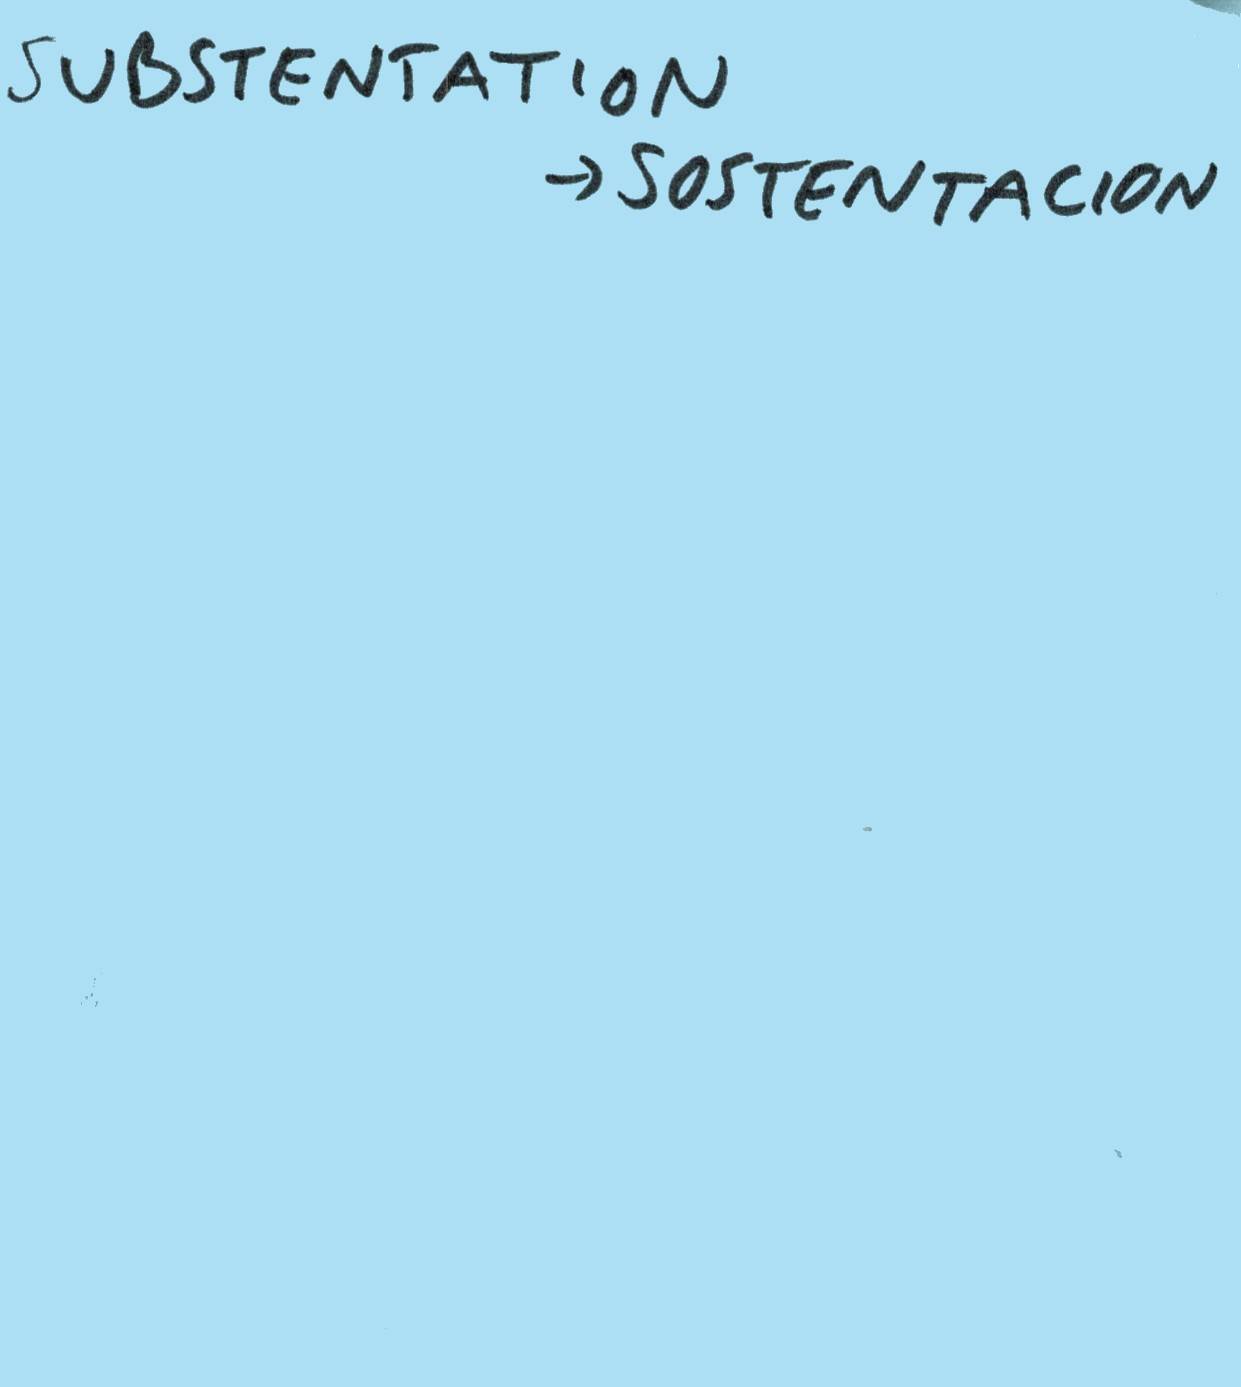 SUBSTENTATION
→ SOSTENTACION